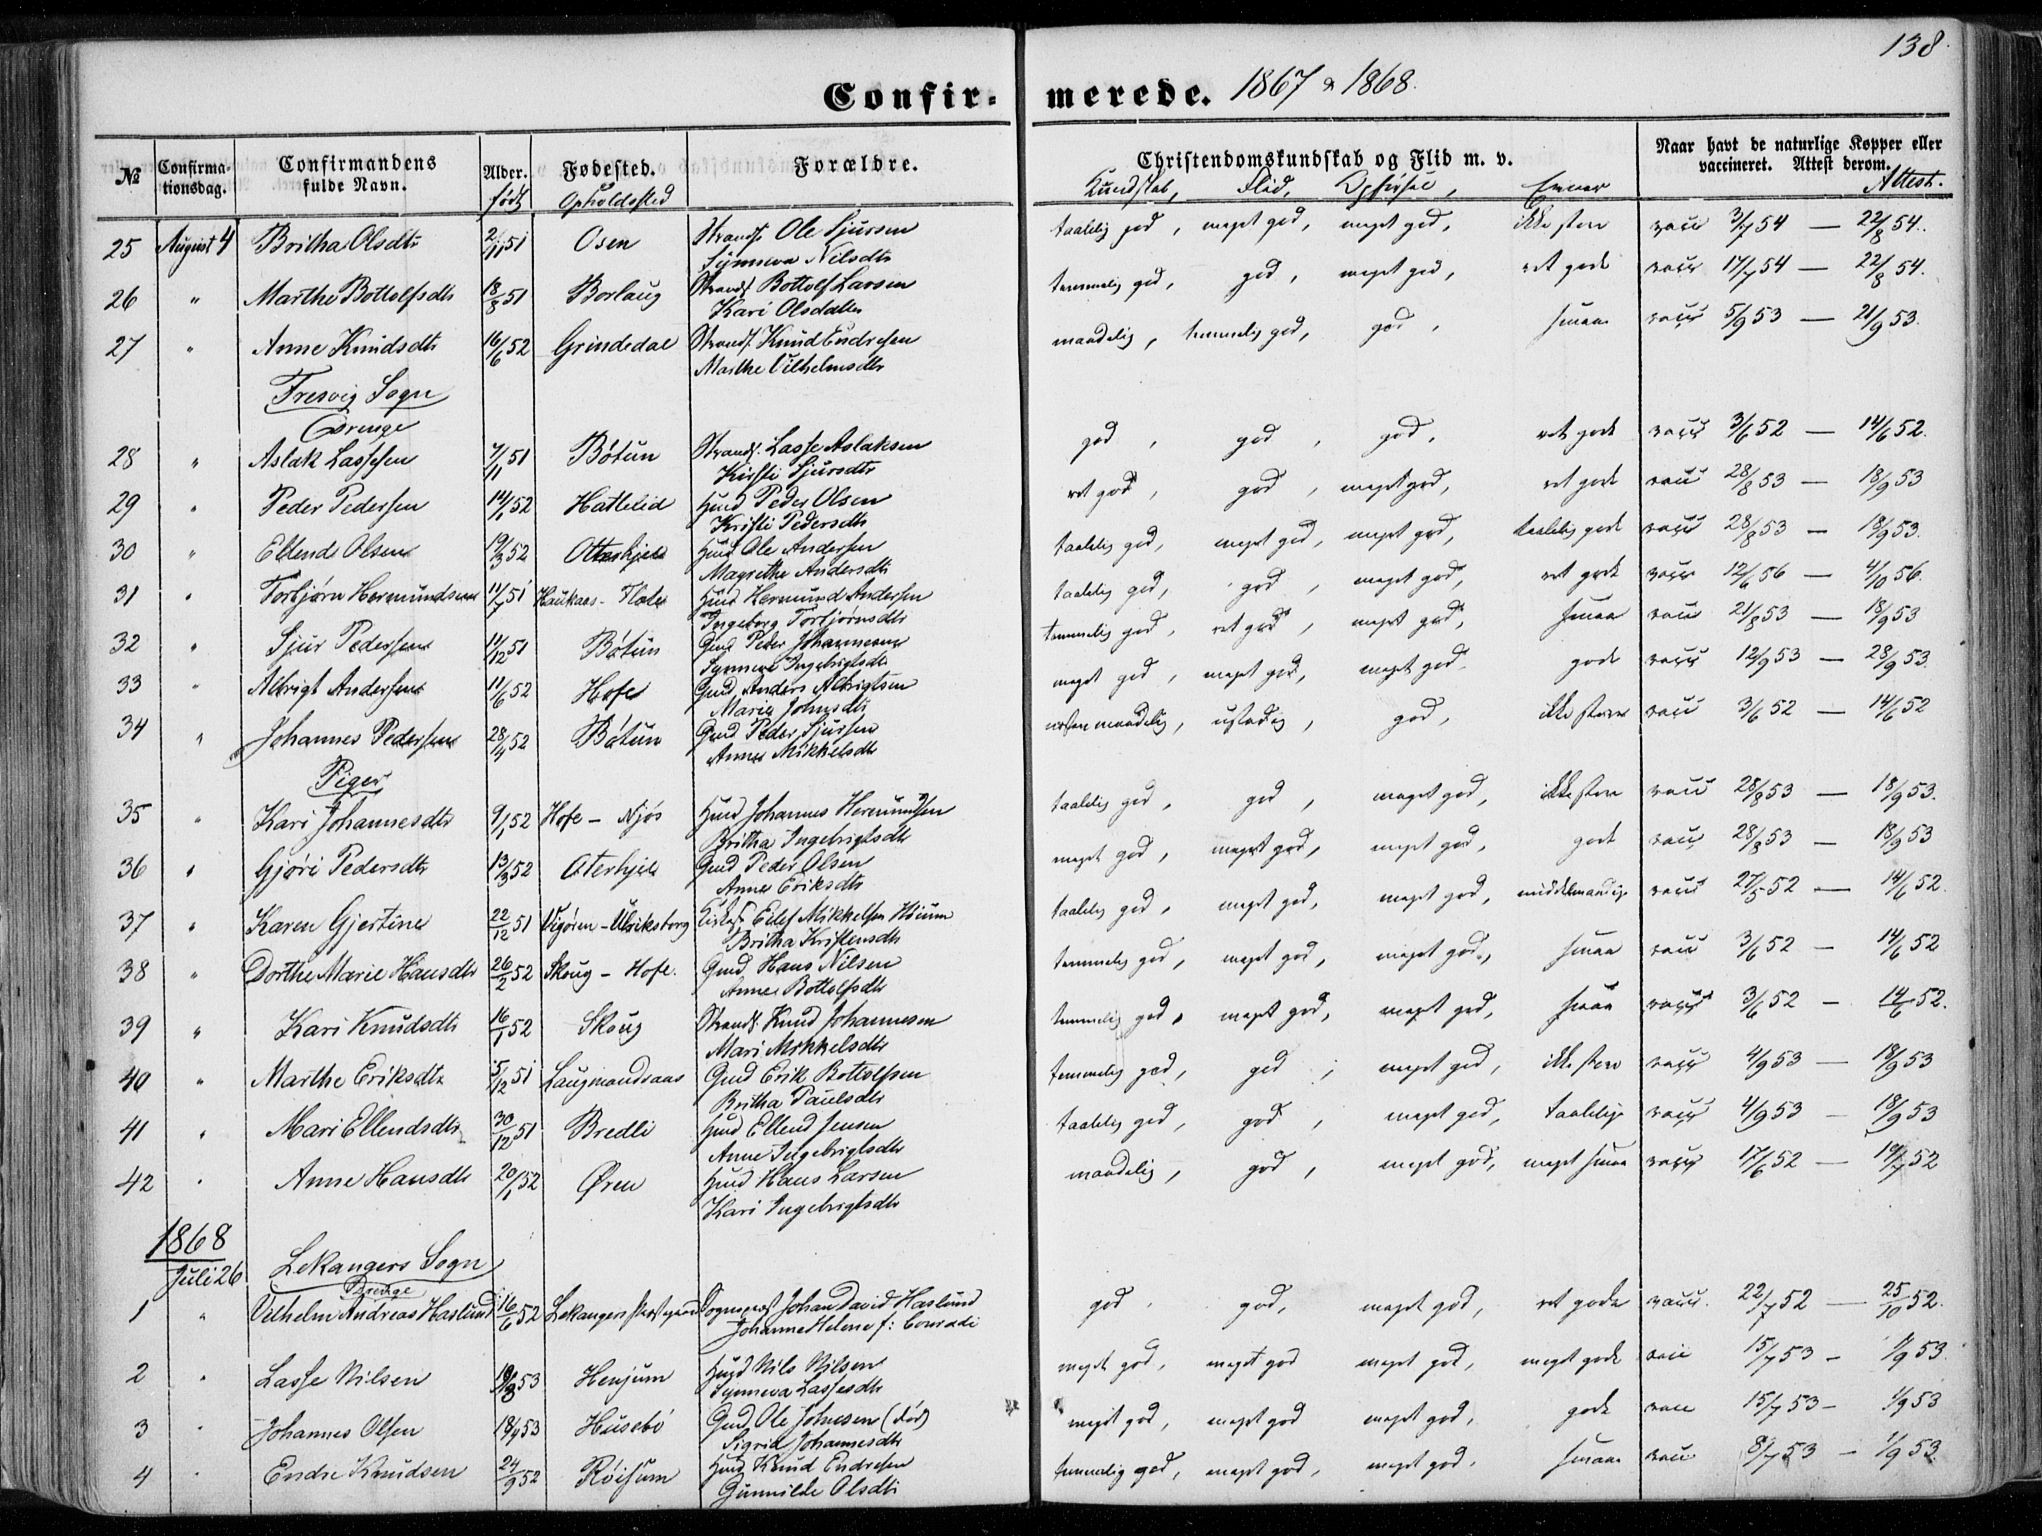 138.
Confirmerede. 1867 & 1868.
№ Confirmationsdag. Confirmandens fulde Navn. Alder. født Fødested. Opholdssted Forældre. Christendomskundskab og Flid m. v. Kundskab, Flid, Opførsel, Evner Naar havt de naturlige Kopper eller vaccineret. Attest derom. Attest.
25 August 4 Britha Olsdtr 2/11 51 Osen Strands. Ole Sjursen taalelig god, meget god, meget god, ikke store vacc 3/7 54 — 22/8 54.
Synneva Nilsdtr
26 " Marthe Bottolfsdtr 18/8 51 Borlaug Strands. Bottolf Larsen temmelig god, god, meget god, ret gode vacc 17/7 54 — 22/8 54.
Kari Olsdatter
27 " Anne Knudsdtr 16/6 52 Grindedal Strands. Knud Endresen maadelig, temmelig god, god, smaa vacc 5/9 53 — 21/9 53.
Marthe Vilhelmsdtr
Fresvig Sogn
Drenge
28 " Aslak Lassesen 7/11 51 Bøtun Strands. Lasse Aslaksen god, god, god, ret gode vacc 3/6 52 — 14/6 52.
Kirsti Sjursdtr
29 " Peder Pedersen 14/1 52 Hattelid Huusd Peder Olsen ret god, god, meget god, ret gode vacc 28/8 53 — 18/9 53
Kristi Pedersdtr
30 " Ellend Olsen 19/3 52 Otterhjell Huusd Ole Andersen taalelig god, meget god, meget god, taalelig gode vacc 28/8 53 — 18/9 53.
Magrethe Andersdtr
31 " Torbjørn Hermundsen 11/7 51 Haukaas - Flole Huusd Hermund Andersen taalelig god, god, meget god, ret gode vacc 12/6 56 — 4/10 56.
Ingeborg Torbjørnsdtr
32 " Sjur Pedersen 11/12 51 Bøtun Gmd Peder Johannesen temmelig god, ret god, meget god, smaa vacc 21/8 53 — 18/9 53
Synneva Ingebrigtsdtr
33 " Albrigt Andersen 11/6 52 Hofe Gmd Anders Albrigtsen meget god, meget god, meget god. gode vacc 12/9 53 — 28/9 53.
Marie Johnsdtr
34 " Johannes Pedersen 28/4 52 Bøtun Gmd Peder Sjursen næsten maadelig, ustadig, god, ikke store vacc 3/6 52 — 14/6 52
Anne Mikkelsdtr
Piger
35 " Kari Johannesdtr 9/1 52 Hofe - Njøs Huusd Johannes Hermundsen taalelig god, god, meget god, ikke store vacc 28/8 53 — 18/9 53.
Britha Ingebrigtsdtr
36 " Gjøri Pedersdtr 13/3 52 Oterhjell Gmd Peder Olsen meget god, meget god, meget god, gode vacc 28/8 53 — 18/9 53
Anne Eriksdtr
37 " Karen Gjertine 22/12 51 Vigøren - Ulriksborg Eilef Mikkelsen Høium taalelig god, meget god, meget god, middelmaadige vacc 27/5 52 — 14/6 52.
Britha Kristensdtr
38 " Dorthe Marie Hansdtr 26/2 52 Skoug - Hofe. Gmd Hans Nilsen temmelig god, meget god, meget god, smaa vacc 3/6 52 — 14/6 52
Anne Bottolfsdtr
39 " Kari Knudsdtr 16/1 52 Skoug Strands. Knud Johannesen temmelig god, meget god, meget god, smaa vacc 3/6 52 — 14/6 52.
Mari Mikkelsdtr
40 " Marthe Eriksdtr 5/12 51 Laugmandsaas Gmd Erik Bottolfsen temmelig god, god, meget god, ikke store vacc 4/9 53 — 18/9 53
Britha Paulsdtr
41 " Mari Ellendsdtr 30/12 51 Bredli Huusd Ellend Jensen taalelig god, god, meget god, taalelige vacc 4/9 53 — 18/9 53
Anne Ingebrigtsdtr
42 " Anne Hansdtr 20/1 52 Øren Huusd Hans Larsen maadelig, god, meget god, meget smaa vacc 17/6 52 — 19/7 52
Kari Ingebrigtsdtr
1868
Juli 26 Lekangers Sogn
Drenge
1 " Vilhelm Andreas Haslund 16/6 52 Lekangers præstegaard Sognepræst Johan David Haslund god. god, meget god, ret gode vacc. 22/7 52 — 25/10 52.
Johanne Helene f: Conradi
2 " Lasse Nilsen 53 Henjum Huusd Nils Nilsen meget god, meget god meget god, meget gode vacc 15/7 53 — 1/9 53.
Synneva Lassesdtr
3 " Johannes Olsen 53 Husebø Gmd Ole Johnesen (død) meget god, meget god meget god, gode vacc 15/7 53 — 1/9 53
Sigrid Johannesdtr
4 " Endre Knudsen 24/9 52 Røisum Huusd Knud Endresen temmelig god, meget god, meget god. smaa vacc 8/7 53 — 1/9 53
Gunnilde Olsdtr